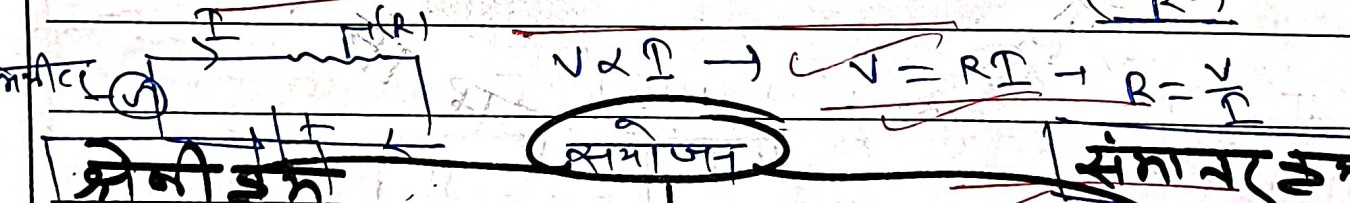 I (R)
V ∝ I → V = RI → R = V/I
श्रेणी क्रम संयोजन समान्तर क्रम